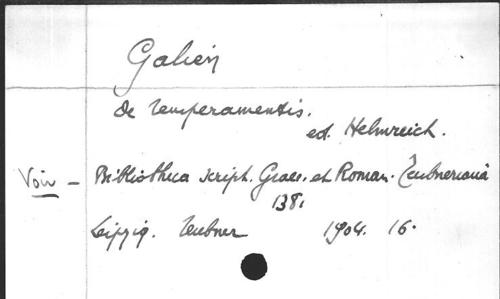 Galien
de temperamentis.
ed. Helmreich.
Voir - Bibliotheca script. Graec. et Roman. Teubneriana
138.
Leipzig. Teubner 1904. 16.